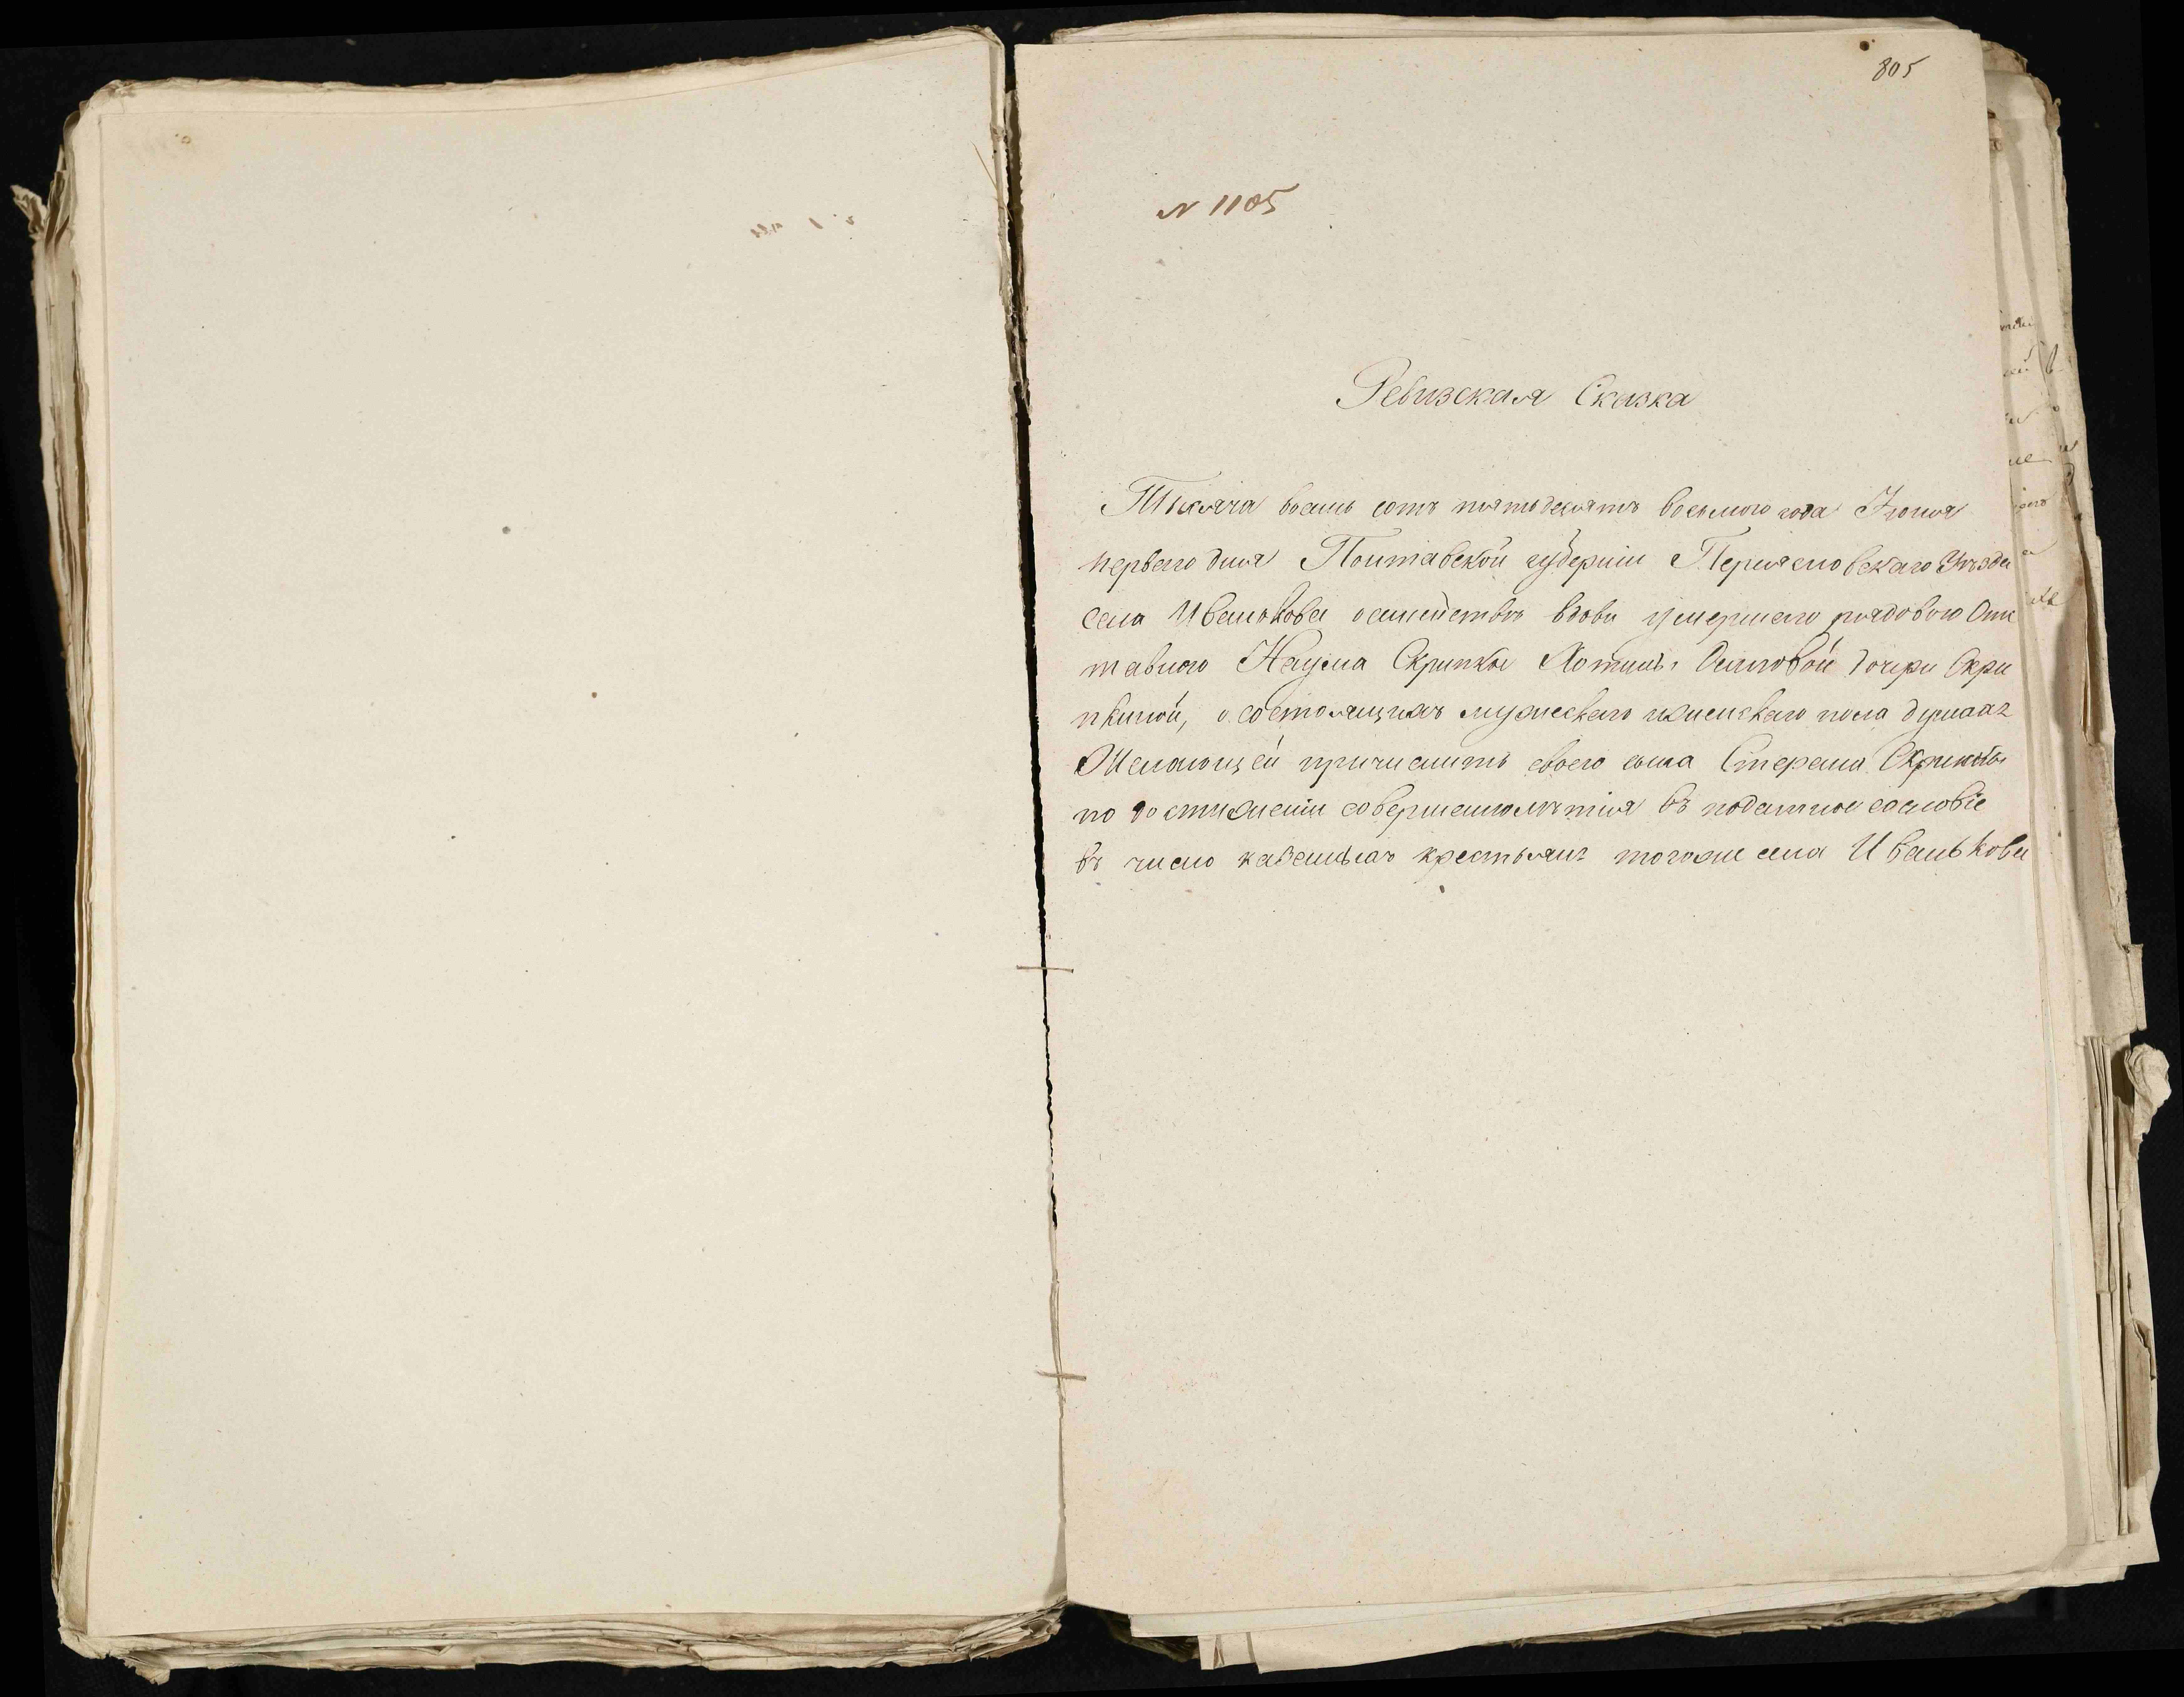 805
№ 1105
Ревизская Сказка
Тысяча восемь сотъ пятьдесятъ восьмого года Июня
первого дня Полтавской губерніи Переясловскаго Уѣзда
села Иванькова о семействѣ вдовы умершаго рядового Отс
тавного Наума Скрипки Хотины Осиповой дочери Скри
пкиной, о состоящихъ мужескаго и женскаго пола душахъ
Желающей причислить своего сына Стефана Скрипкы
по достиженіи совершеннолѣтія въ податное сословіе
въ число казенныхъ крестьянъ тогоже села Иванькова